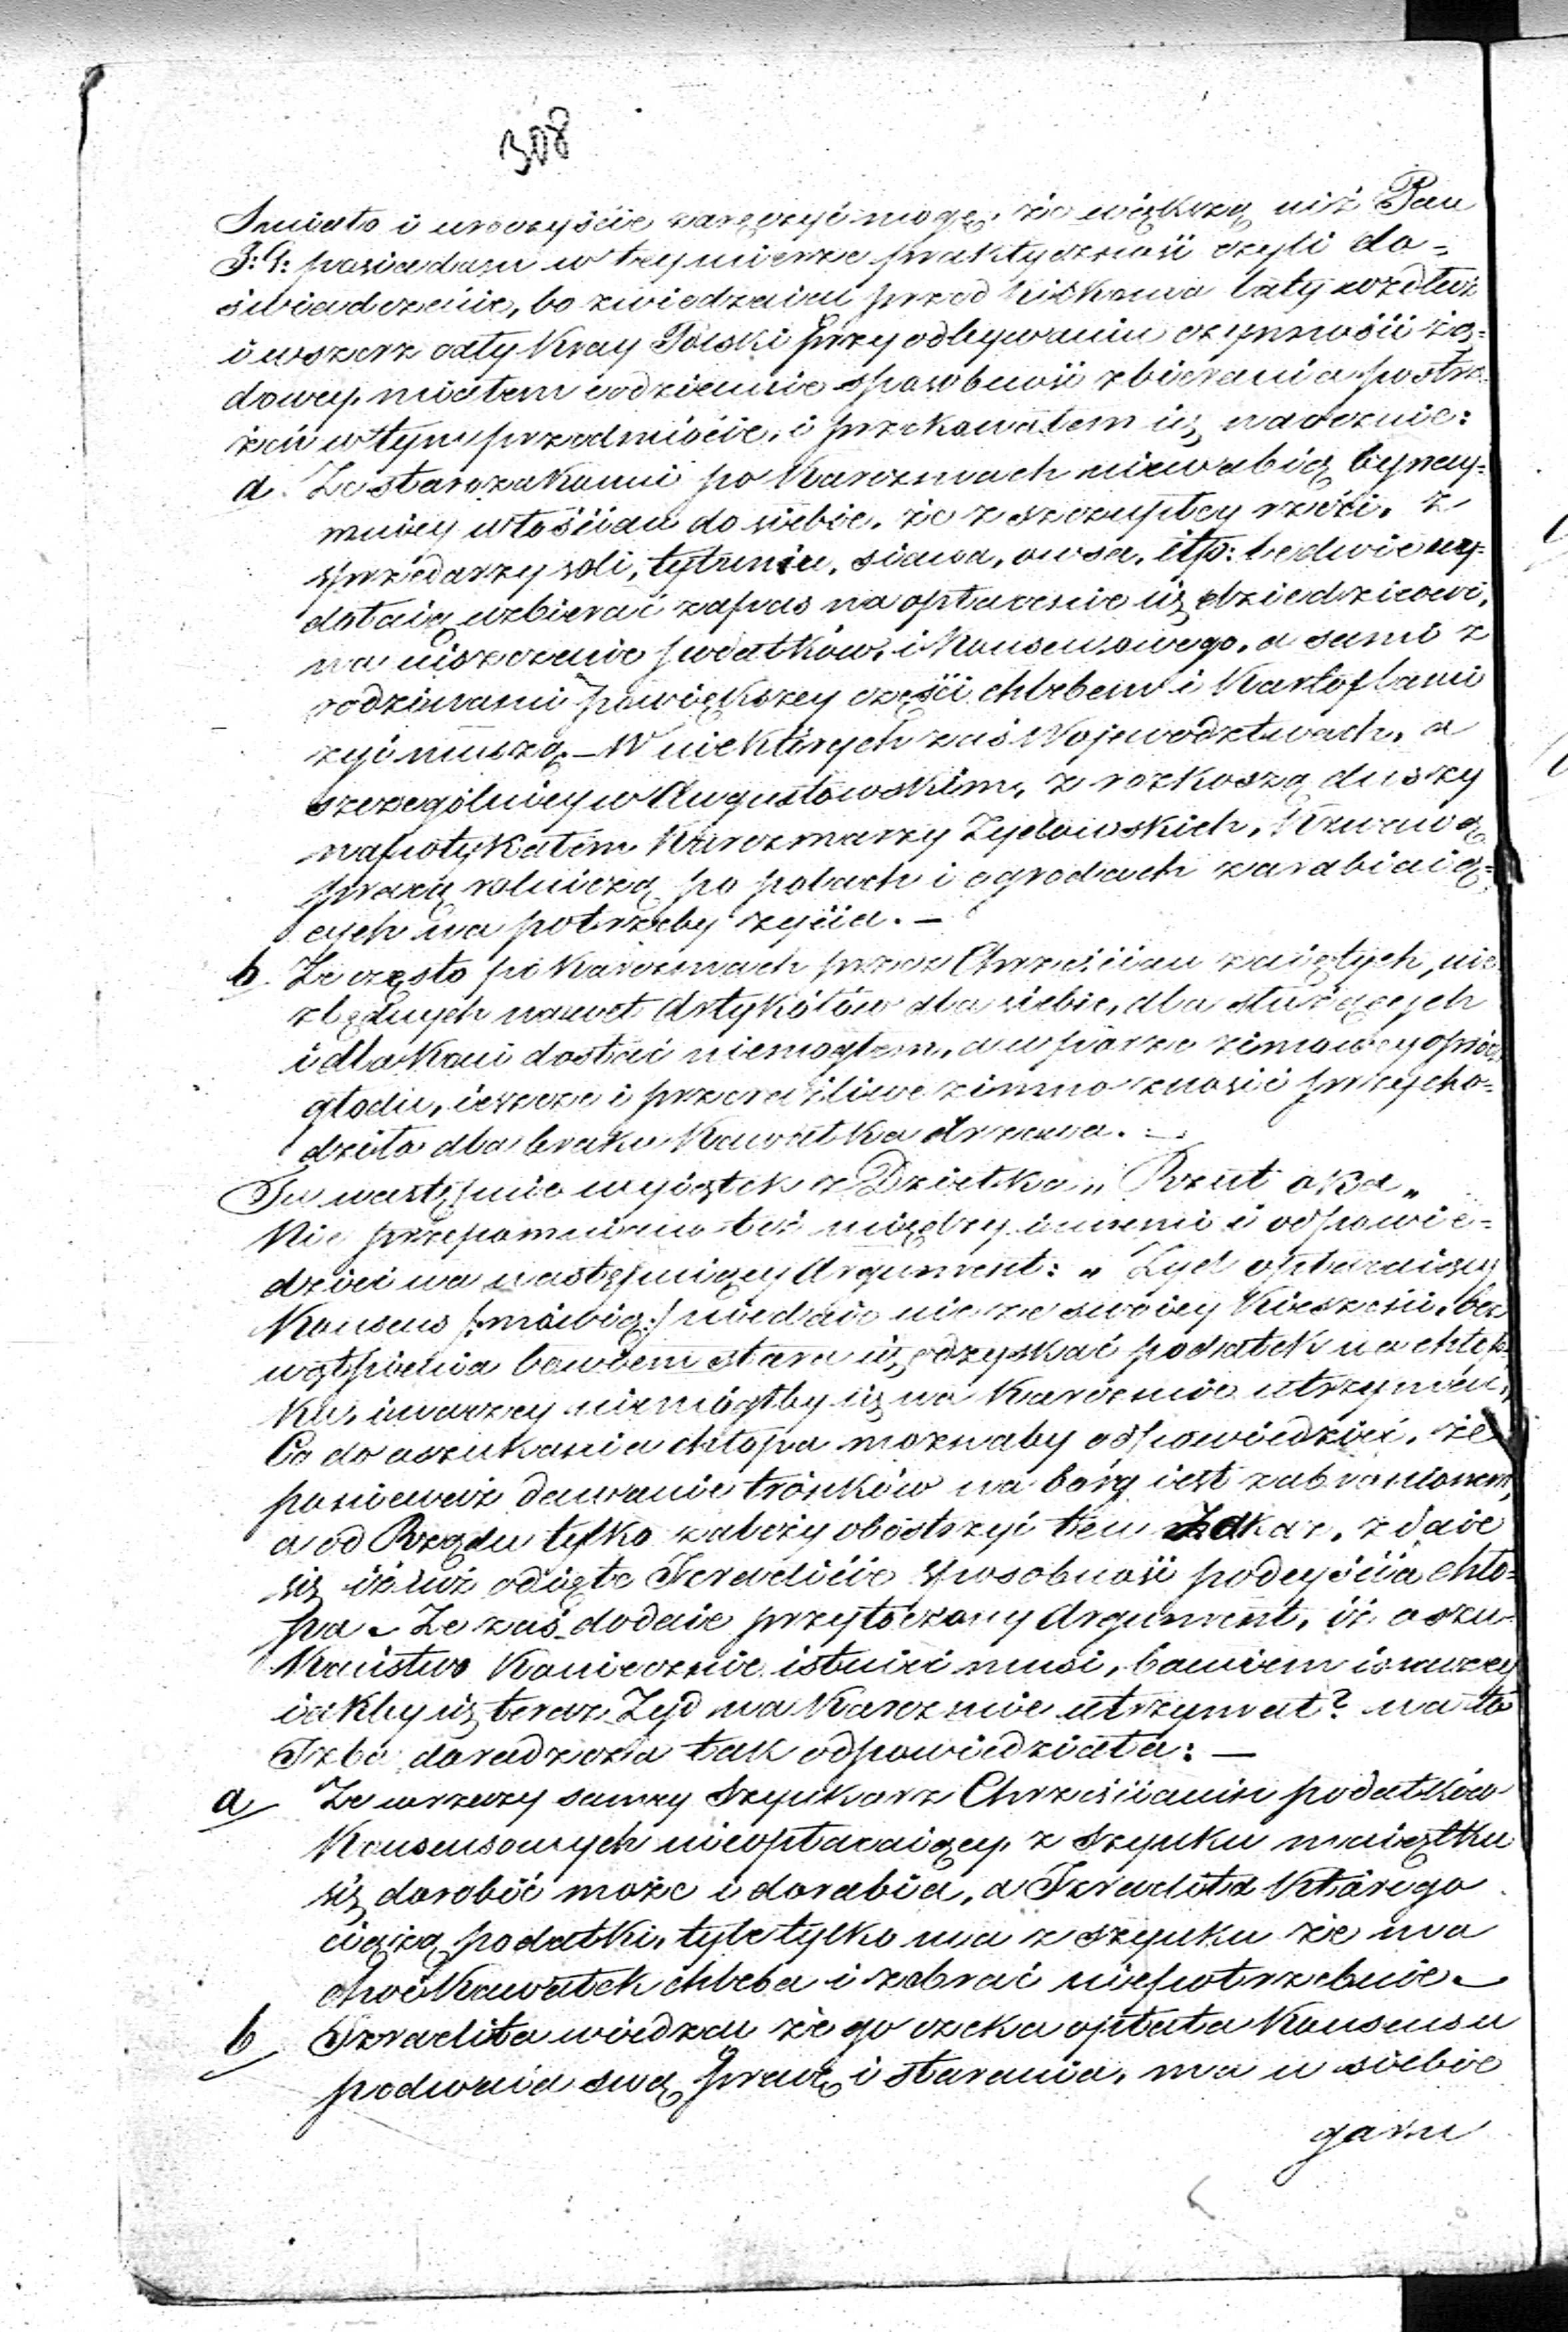 308
Smiało i uroczyście zaręczyć mogę, że większą niż Pan
J: G: posiadam w tey mierze praktyczność czyli do-
świadczenie, bo zwiedzaiąc przed kilkoma laty wzdłuż
i wszerz cały Kray Polski przy odbywaniu czynności
dowey, miałem codziennie sposobność zbierania postrze
żeń w tym przedmiocie, i przekonałem się naocznie:
a. Że starozakonni po Karczmach niewabią bynay-
mniey włościan do siebie, że z szczupłey rzeczy, z
sprzedarzy soli, tytuniu, siana, owsa, itp: ledwie wy-
dołaią uzbierać zapas na opłacenie się dziedzicowi,
na uiszczenie podatków, i Konsensowego, a sami z
rodzinami powiększey części chlebem i Kartoflami
żyć muszą. — W niektórych zaś Województwach, a
szczególniey w Augustowskim, z rozkoszą duszy
napotykałem Karczmarzy Żydowskich, Krwawą
pracą rolniczą po polach i ogrodach zarabiaią-
cych na potrzeby życia. —
b. Że często po Karczmach przez Chrześcian zaiętych, nie
zbędnych nawet Artykułów dla siebie, dla służących
i dla Koni dostać niemogłem, a w porze zimowey oprócz
głodu, ieszcze i przeraźliwe zimno znosić przycho-
dziło dla braku Kawałka drzewa. —
Tu następnie wyiątek z Dziełka „ Rzut oka „
Nie przepomniano też między innemi i odpowie-
dzieć na następuiący Argument: „ Żyd opłacaiący
Konsens /: mówią :/ niedaie nic ze swoiey Kieszeni, bez
wątpienia bowiem stara się odzyskać podatek na chłop
ku, inaczey niemógłby się na Karczmie utrzymać,
Co do oszukania chłopa możnaby odpowiedzieć, że
ponieważ dawanie trónków na borg iest zabronionem,
a od Rządu tylko zależy obostrzyć ten Zakaz, zdaie
się iż iuż odięta Izraelicie sposobność podeyścia chło-
pa. Że zaś dodaie przytoczony Argument, iż oszu-
Kaństwo Koniecznie istnieć musi, bowiem inaczey
iakby się teraz Żyd na Karczmie utrzymał? na to
Izba doradzcza tak odpowiedziała: —
a Że w rzeczy samey Szynkarz Chrześcianin podatków
Konsensowych nieopłacaiący, z szynku maiątku
się dorobić może i dorabia, a Izraelita Którego
ciążą podatki, tyle tylko ma z szynku że ma
choć Kawałek chleba i żebrać niepotrzebuie. —
b Izraelita wiedząc że go czeka opłata Konsensu
podwaia swą pracę i starania, ma u siebie